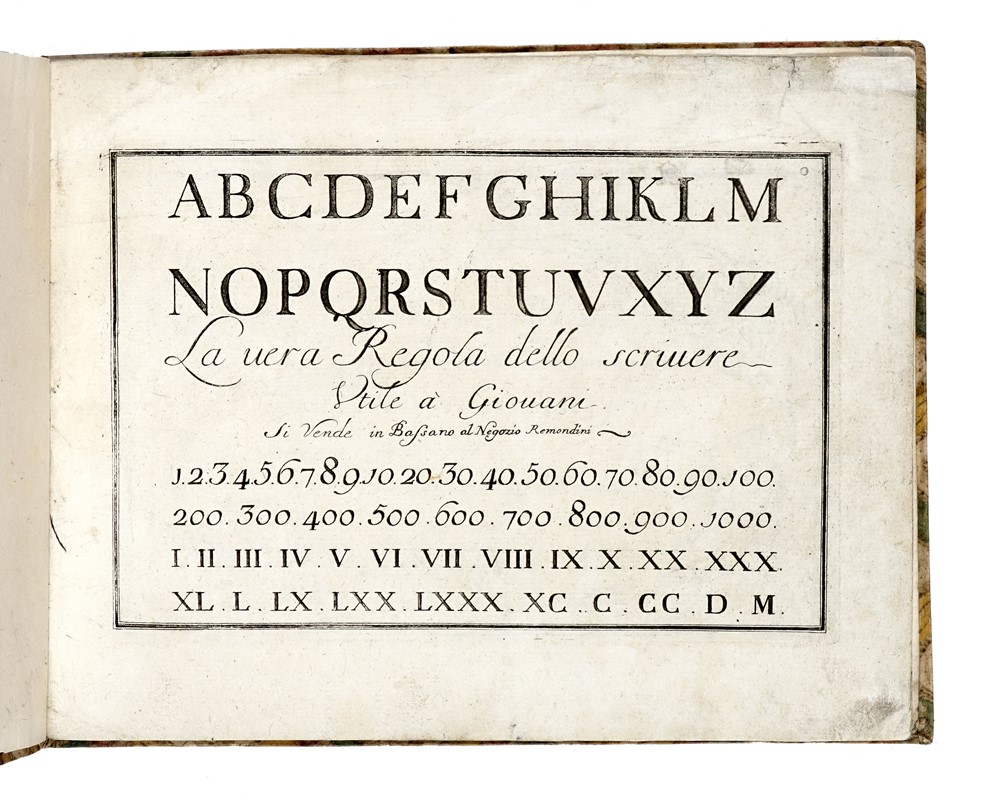 ABCDEFGHIKLM
NOPQRSTUVXYZ
La uera Regola dello scriuere
Vtile à Giouani.
Si Vende in Baſsano al Negozio Remondini
1.2.3.4.5.6.7.8.9.10.20.30.40.50.60.70.80.90.100.
200.300.400.500.600.700.800.900.1000.
I.II.III.IV.V.VI.VII.VIII.IX.X.XX.XXX.
XL.L.LX.LXX.LXXX.XC.C.CC.D.M.